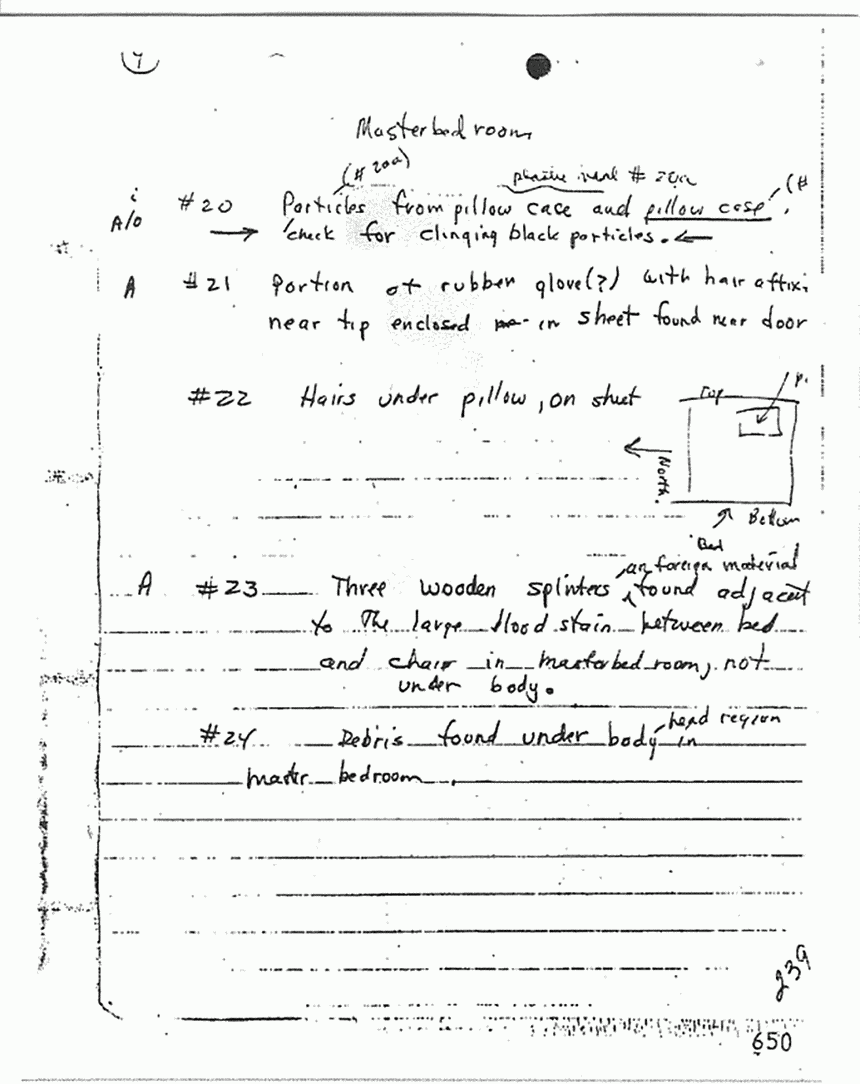 7
Masterbedroom
(# 20a)
plastic vial # 20a
(#
i
A/O
#20 Particles from pillow case and pillow case.
→ check for clinging black particles. ←
A #21 Portion of rubber glove(?) with hair affixi
near tip enclosed in sheet found near door
#22 Hairs under pillow, on sheet
Top
P.
North
Bottom
Bed
an foreign material
A #23 Three wooden splinters found adjacent
to The large blood stain between bed
and chair in masterbedroom, not
under body.
head region
#24 Debris found under body in
master bedroom.
239
650